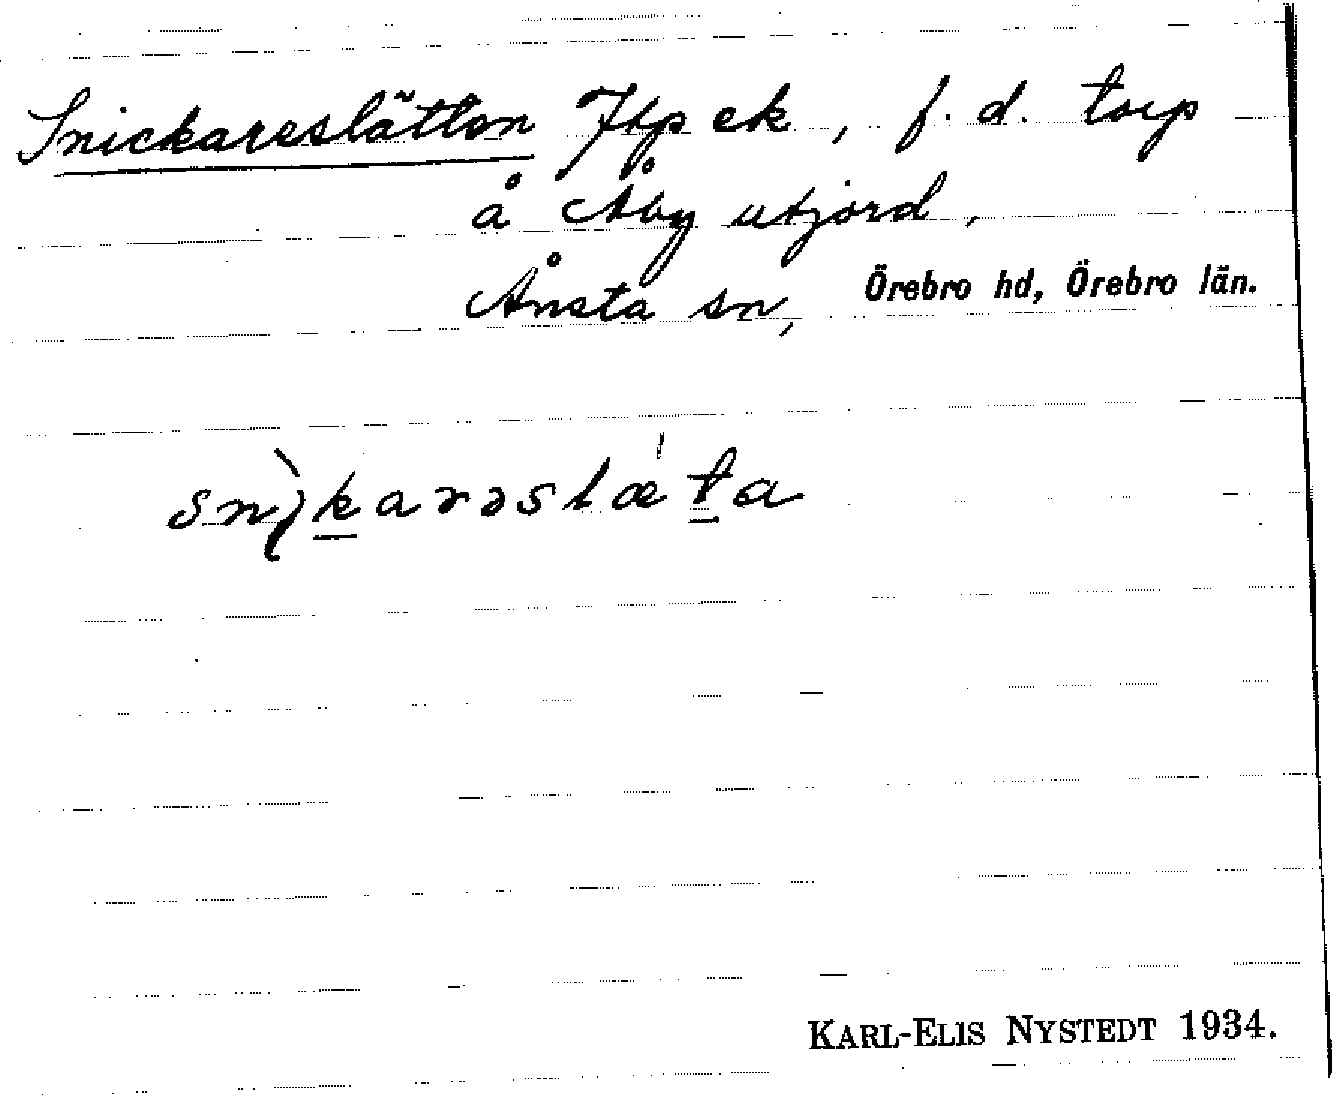 Snickareslätten Jtp ek, f. d. torp
å Åby utjord,
Ånsta sn, Örebro hd, Örebro län.
snı̀karəslæ´ta
KARL-ELIS NYSTEDT 1934.